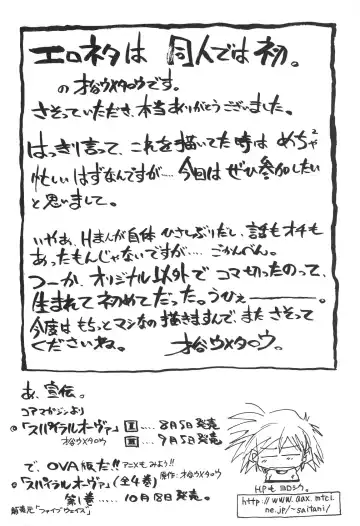 エロネタは 同人では 初。
の 才谷ウメタロウです。
さそっていただき、本当ありがとうございました。
はっきり言って、これを描いてた時は めちゃ²
忙しいはずなんですが‥‥今回は ぜひ参加したい
と思いまして。
いやあ、Hまんが自体 ひさしぶりだし、話もオチも
あったもんじゃないですが‥‥ごかんべん。
つーか、オリジナル以外で コマ切ったのって、
生まれて初めてだった。うひぇ―――。
今度は もちっとマシなの描きますんで、また さそって
くださいね。 才谷ウメタロウ。
あ、宣伝。
コアマガジンより
「スパイラルオーヴァ」Ⅰ‥‥8月5日発売
才谷ウメタロウ Ⅱ‥‥9月5日発売
で、OVA版だ!! アニメも みよう!!
「スパイラルオーヴァ」(全4巻) 原作:才谷ウメタロウ
第1巻 ‥‥ 10月8日発売。
発売元「ファイブウェイズ」
HPも ヨロシク。
http://www.aax.mtci.
ne.jp/~saitani/